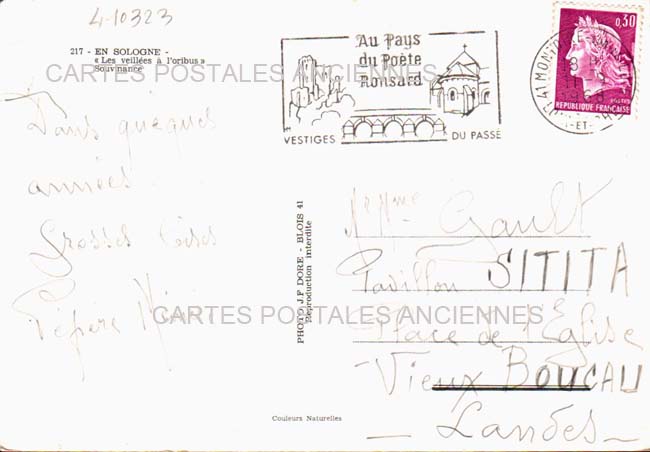 4-10323
217 - EN SOLOGNE -
« Les veillées à l'oribus »
Souvinance
CARTES POSTALES ANCIENNES
Au Pays
du Poète
Ronsard
VESTIGES DU PASSÉ
0,30
POSTES
REPUBLIQUE FRANÇAISE
Dans quèques
années
Grosses bises
Pépère
PHOTO J.P DORE - BLOIS 41
Reproduction interdite
Mr Mme Gault
Pavillon SITITA
CARTES POSTALES ANCIENNES
Place de l'Eglise
Vieux BOUCAU
- Landes -
Couleurs Naturelles